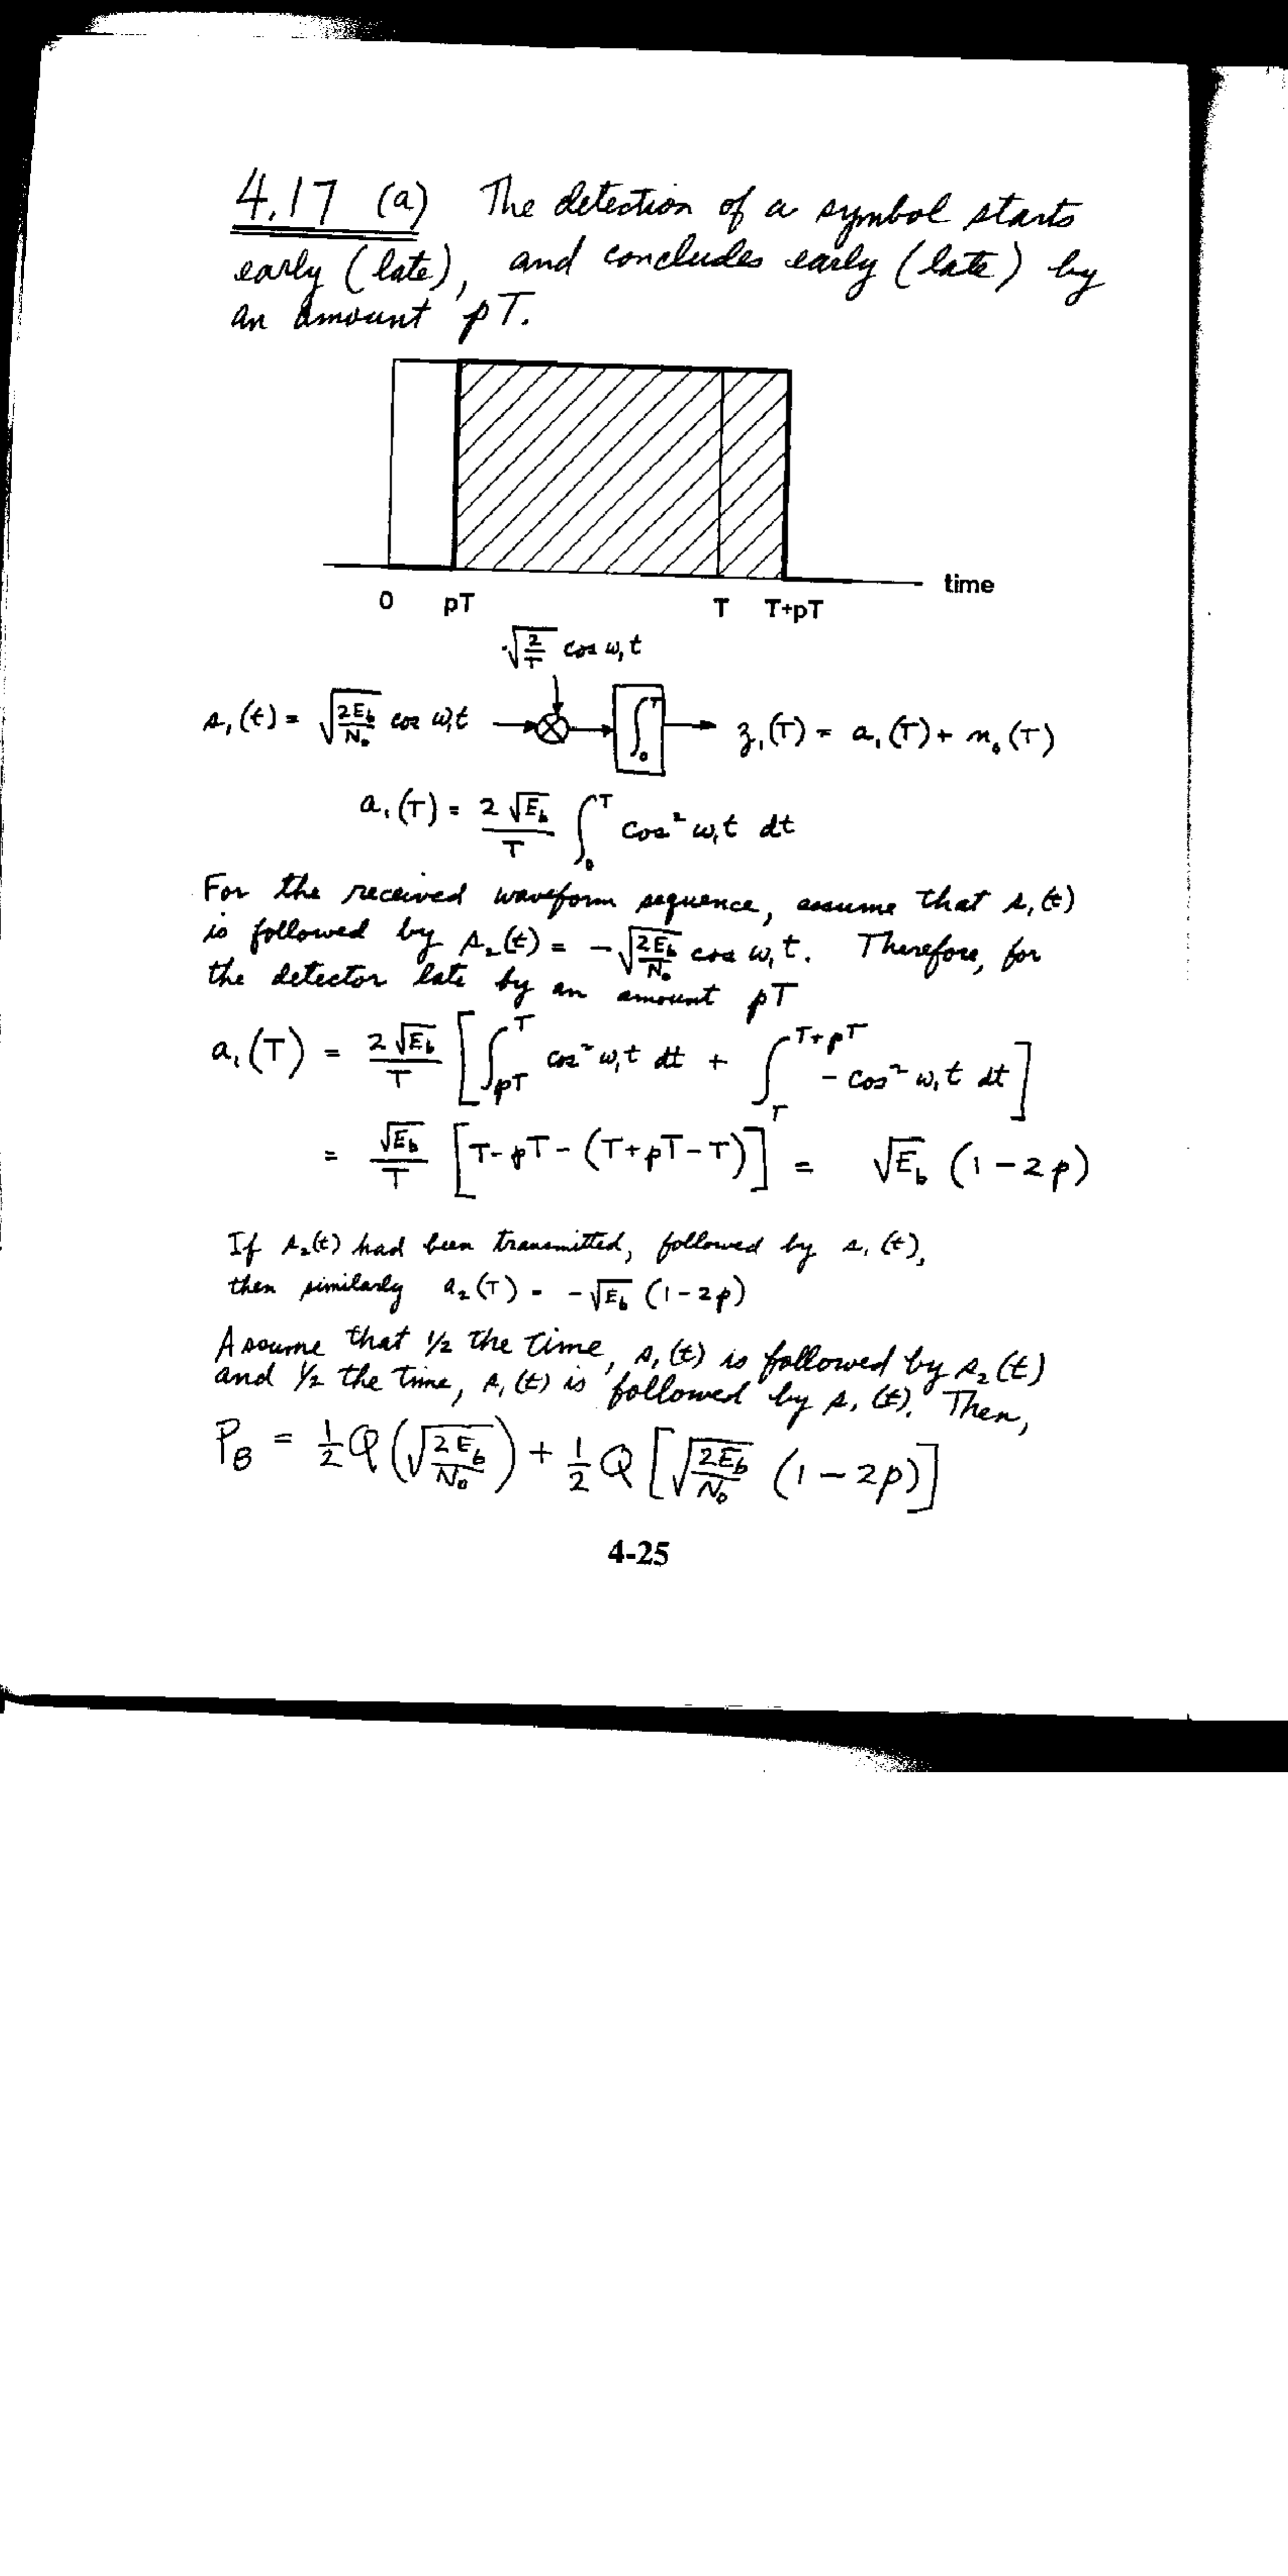 4.17 (a) The detection of a symbol starts
early (late), and concludes early (late) by
an amount pT.
0 pT T T+pT time
√(2/T) cos ω₁t
s₁(t) = √(2E_b/N₀) cos ω₁t → ⊗ → ∫₀ᵀ → z₁(T) = a₁(T) + n₀(T)
a₁(T) = 2√E_b/T ∫₀ᵀ cos² ω₁t dt
For the received waveform sequence, assume that s₁(t)
is followed by s₂(t) = −√(2E_b/N₀) cos ω₁t. Therefore, for
the detector late by an amount pT
a₁(T) = 2√E_b/T [∫_{pT}^{T} cos² ω₁t dt + ∫_{T}^{T+pT} − cos² ω₁t dt]
= √E_b/T [T−pT−(T+pT−T)] = √E_b (1−2p)
If s₂(t) had been transmitted, followed by s₁(t),
then similarly a₂(T) = −√E_b (1−2p)
Assume that 1/2 the time, s₁(t) is followed by s₂(t)
and 1/2 the time, s₁(t) is followed by s₁(t). Then,
P_B = 1/2 Q(√(2E_b/N₀)) + 1/2 Q[√(2E_b/N₀) (1−2p)]
4-25